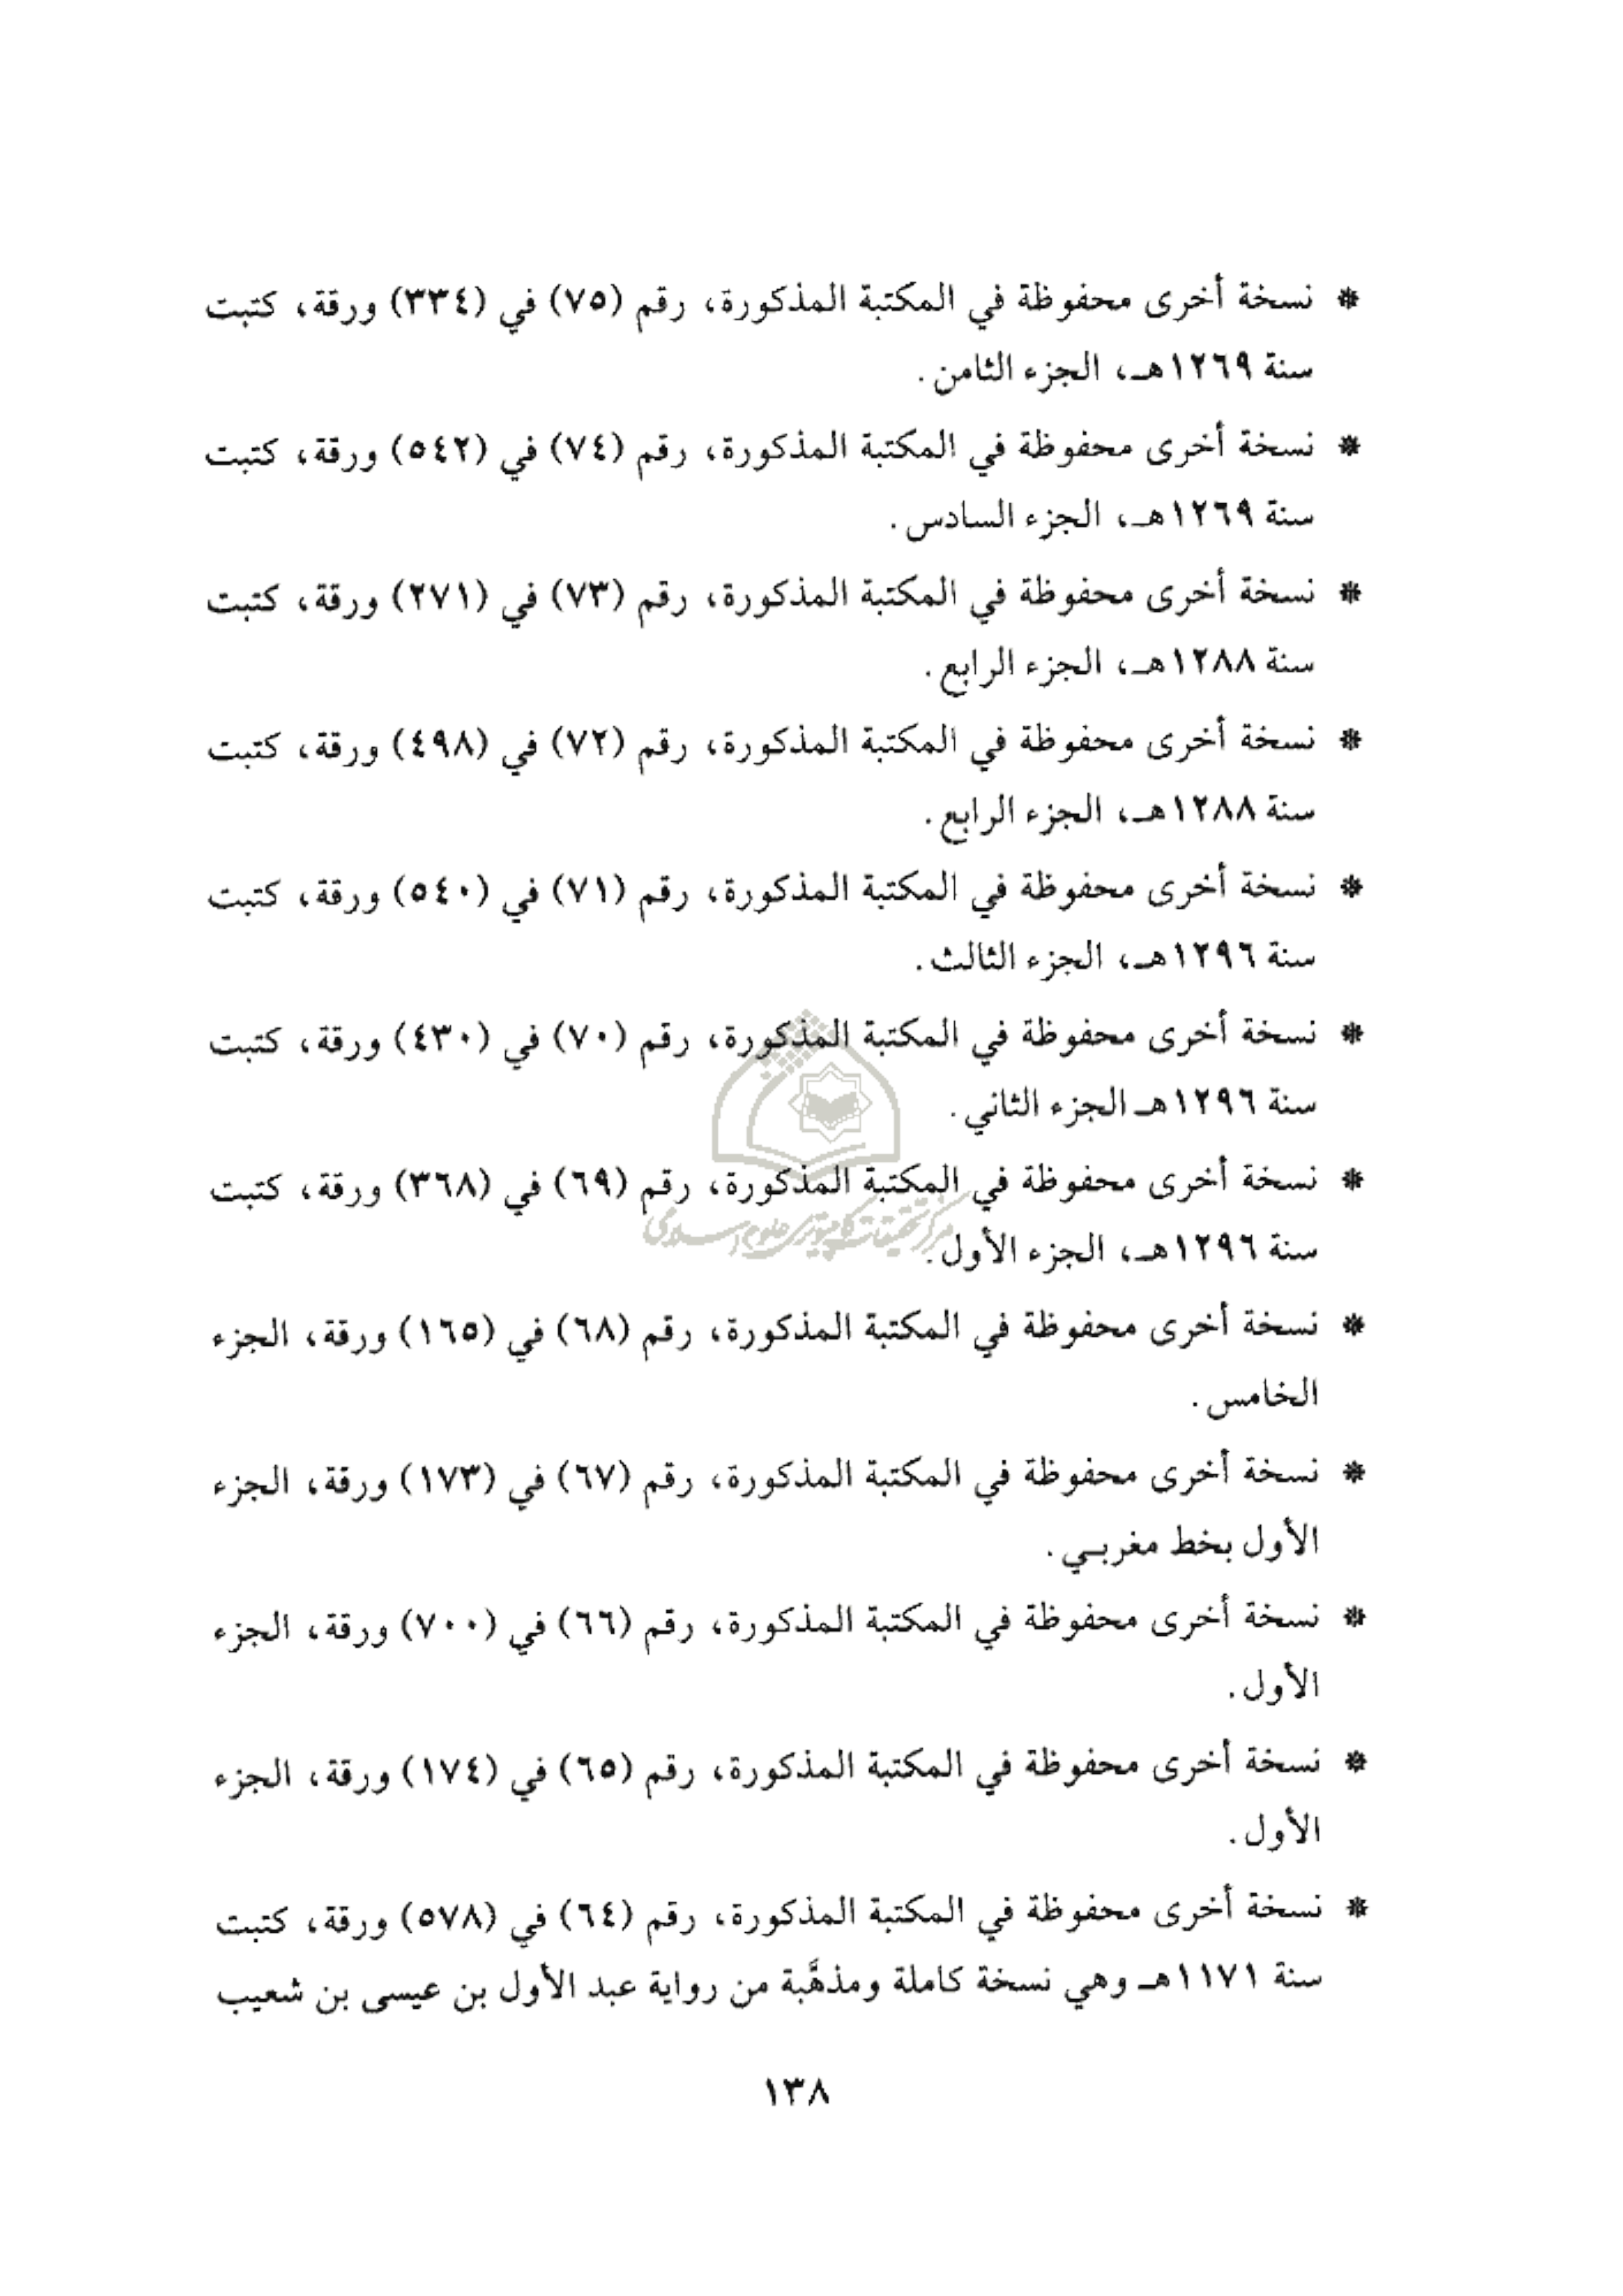 * نسخة أخرى محفوظة في المكتبة المذكورة، رقم (٧٥) في (٣٣٤) ورقة، كتبت
سنة ١٢٦٩هـ، الجزء الثامن.
* نسخة أخرى محفوظة في المكتبة المذكورة، رقم (٧٤) في (٥٤٢) ورقة، كتبت
سنة ١٢٦٩هـ، الجزء السادس.
* نسخة أخرى محفوظة في المكتبة المذكورة، رقم (٧٣) في (٢٧١) ورقة، كتبت
سنة ١٢٨٨هـ، الجزء الرابع.
* نسخة أخرى محفوظة في المكتبة المذكورة، رقم (٧٢) في (٤٩٨) ورقة، كتبت
سنة ١٢٨٨هـ، الجزء الرابع.
* نسخة أخرى محفوظة في المكتبة المذكورة، رقم (٧١) في (٥٤٠) ورقة، كتبت
سنة ١٢٩٦هـ، الجزء الثالث.
* نسخة أخرى محفوظة في المكتبة المذكورة، رقم (٧٠) في (٤٣٠) ورقة، كتبت
سنة ١٢٩٦هـ الجزء الثاني.
* نسخة أخرى محفوظة في المكتبة المذكورة، رقم (٦٩) في (٣٦٨) ورقة، كتبت
مركز تحقيقات كامپيوتری علوم اسلامی
سنة ١٢٩٦هـ، الجزء الأول.
* نسخة أخرى محفوظة في المكتبة المذكورة، رقم (٦٨) في (١٦٥) ورقة، الجزء
الخامس.
* نسخة أخرى محفوظة في المكتبة المذكورة، رقم (٦٧) في (١٧٣) ورقة، الجزء
الأول بخط مغربـي.
* نسخة أخرى محفوظة في المكتبة المذكورة، رقم (٦٦) في (٧٠٠) ورقة، الجزء
الأول.
* نسخة أخرى محفوظة في المكتبة المذكورة، رقم (٦٥) في (١٧٤) ورقة، الجزء
الأول.
* نسخة أخرى محفوظة في المكتبة المذكورة، رقم (٦٤) في (٥٧٨) ورقة، كتبت
سنة ١١٧١هـ وهي نسخة كاملة ومذهَّبة من رواية عبد الأول بن عيسى بن شعيب
١٣٨